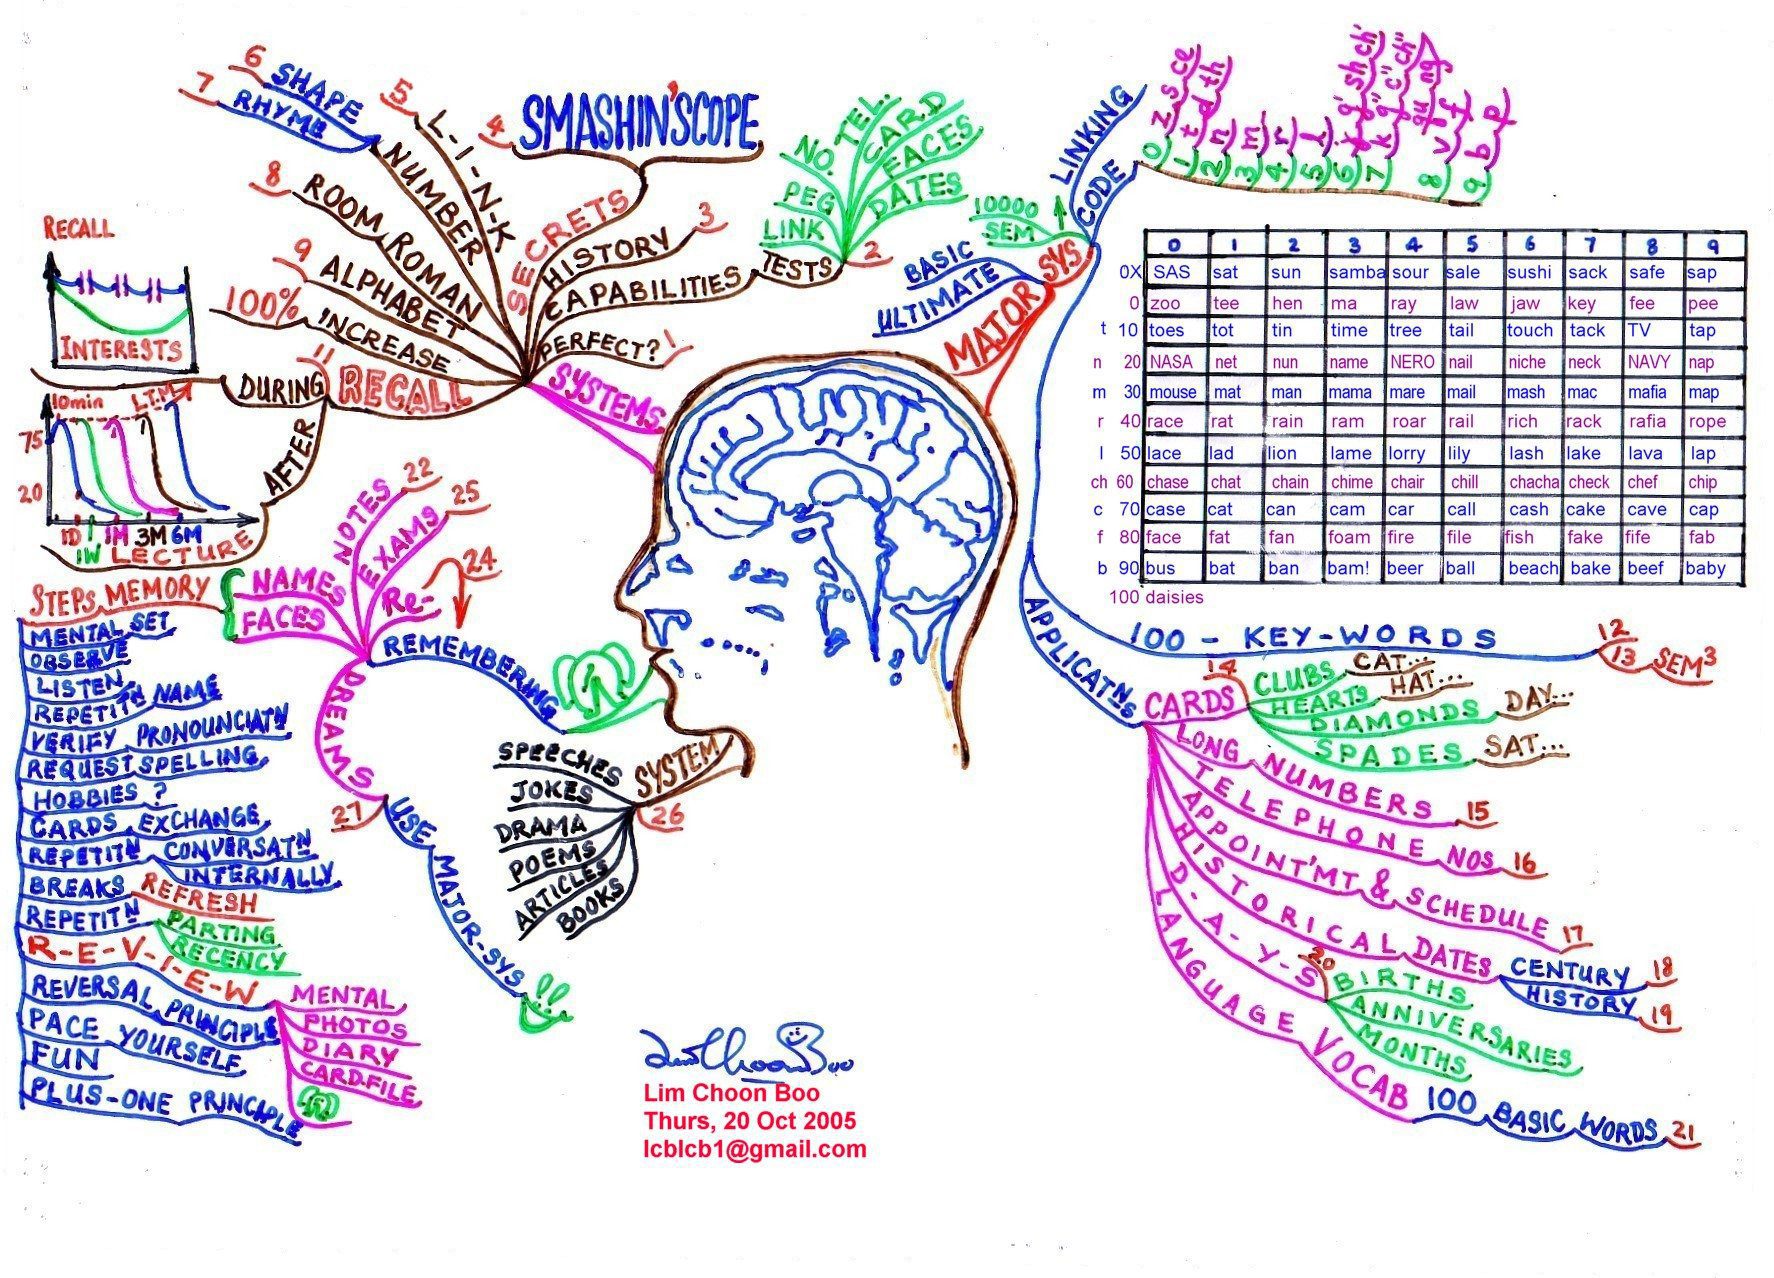 6 SHAPE
7 RHYME
NUMBER
5 L-I-N-K
4 SMASHIN'SCOPE
SECRETS
8 ROOM ROMAN
9 ALPHABET
100% INCREASE
HISTORY 3
CAPABILITIES TESTS 2
PERFECT? 1
NO. TEL.
CARD
FACES
DATES
PEG
LINK
SYSTEMS
11 RECALL
DURING
AFTER
RECALL
INTERESTS
10min L.T.M
75
20
1D 1W 1M 3M 6M
LECTURE
NOTES 22
EXAMS 25
Re- 24
NAMES
FACES
REMEMBERING
DREAMS
27
USE MAJOR-SYS
STEPS MEMORY
MENTAL SET
OBSERVE
LISTEN
REPETITN NAME
VERIFY PRONOUNCIATN
REQUEST SPELLING
HOBBIES ?
CARDS EXCHANGE
REPETITN CONVERSATN
INTERNALLY
BREAKS REFRESH
REPETITN PARTING
RECENCY
R-E-V-I-E-W
MENTAL
PHOTOS
DIARY
CARD-FILE
REVERSAL PRINCIPLE
PACE YOURSELF
FUN
PLUS-ONE PRINCIPLE
SYSTEM
26
SPEECHES
JOKES
DRAMA
POEMS
ARTICLES
BOOKS
Lim Choon Boo
Lim Choon Boo
Thurs, 20 Oct 2005
lcblcb1@gmail.com
MAJOR SYS
10000
SEM
BASIC
ULTIMATE
LINKING
CODE
0) z, s, ce)
1) t d th)
2) n)
3) m)
4) r)
5) l)
6) j g' sh ch'
7) k g" c" ch"
qu ng
8) v f)
9) b p)
0 1 2 3 4 5 6 7 8 9
0X SAS sat sun samba sour sale sushi sack safe sap
0 zoo tee hen ma ray law jaw key fee pee
t 10 toes tot tin time tree tail touch tack TV tap
n 20 NASA net nun name NERO nail niche neck NAVY nap
m 30 mouse mat man mama mare mail mash mac mafia map
r 40 race rat rain ram roar rail rich rack rafia rope
l 50 lace lad lion lame lorry lily lash lake lava lap
ch 60 chase chat chain chime chair chill chacha check chef chip
c 70 case cat can cam car call cash cake cave cap
f 80 face fat fan foam fire file fish fake fife fab
b 90 bus bat ban bam! beer ball beach bake beef baby
100 daisies
APPLICATNs
100 - KEY-WORDS 12
13 SEM3
14
CARDS
CLUBS CAT...
HEARTS HAT...
DIAMONDS DAY...
SPADES SAT...
LONG NUMBERS 15
TELEPHONE NOS 16
APPOINT'MT & SCHEDULE 17
HISTORICAL DATES
CENTURY 18
HISTORY 19
D-A-Y-S 20
BIRTHS
ANNIVERSARIES
MONTHS
LANGUAGE VOCAB 100 BASIC WORDS 21